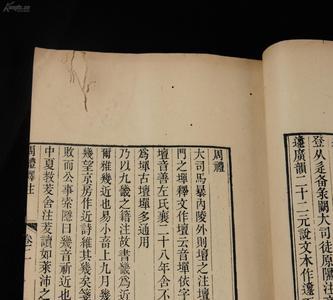 登从辵备彔闕大司徒原隰注
邍廣韻二十二元説文本作邍
周禮
大司馬暴内陵外則壇之注壇
門之墠釋文作壇云音墠依字
壇音善左氏襄二十八年舍不
爲壇古壇墠多通用
乃以九畿之籍注故書畿爲近
爾雅幾近也易小畜上九月幾
幾望京房作近詩維其幾矣箋
敗而公事索隱曰幾音祈近也
中夏教茇舍注茇讀如萊沛之
周禮釋注
卷二